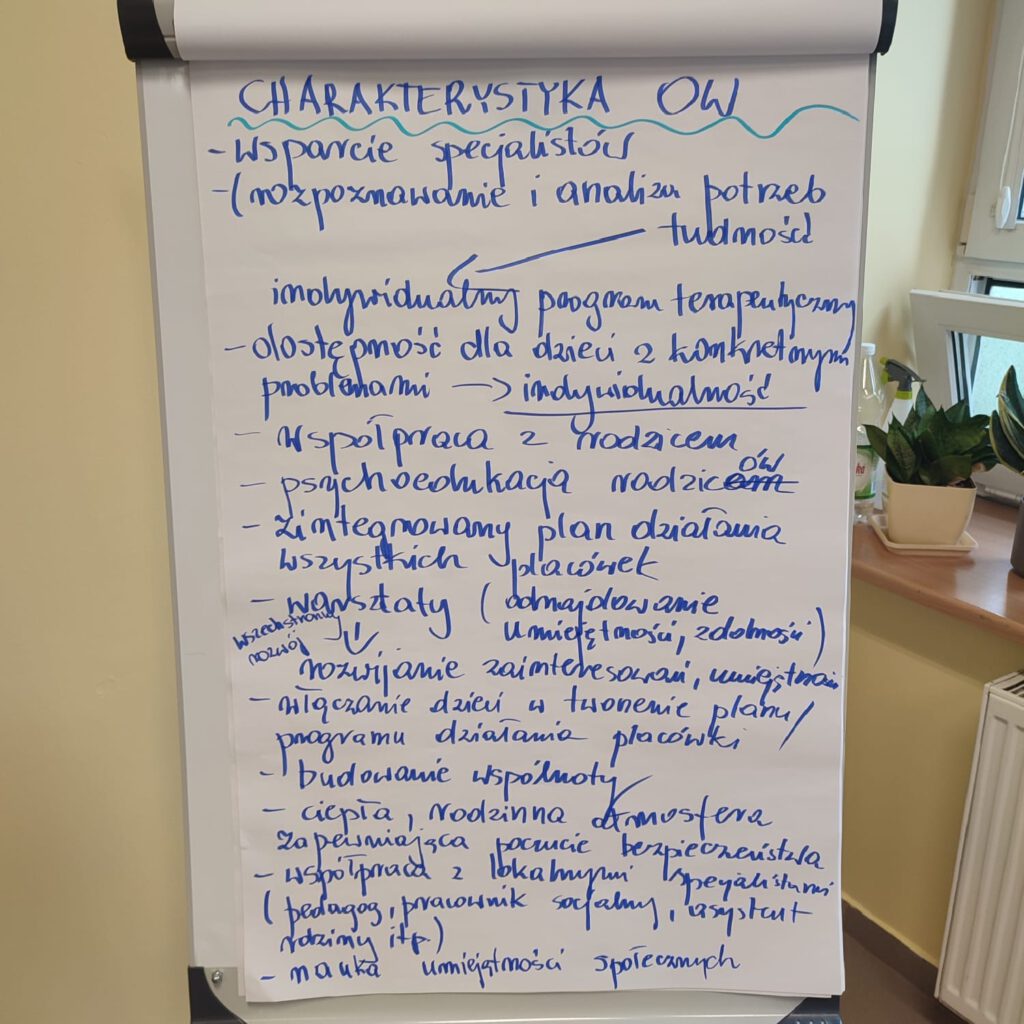 CHARAKTERYSTYKA OW
- wsparcie specjalistów
- (rozpoznawanie i analiza potrzeb
tudności
indywidualny program terapeutyczny
- dostępność dla dzieci z konkretnymi
problemami —> indywidualność
- współpraca z rodzicem
- psychoedukacja rodziców
- zintegrowany plan działania
wszystkich placówek
- warsztaty (odnajdowanie
umiejętności, zdolności)
wszechstronny
rozwój
rozwijanie zainteresowań, umiejętności
- włączanie dzieci w tworzenie planu/
programu działania placówki
- budowanie wspólnoty
- ciepła, rodzinna atmosfera
zapewniająca poczucie bezpieczeństwa
- współpraca z lokalnymi specjalistami
(pedagog, pracownik socjalny, asystent
rodziny itp.)
- nauka umiejętności społecznych